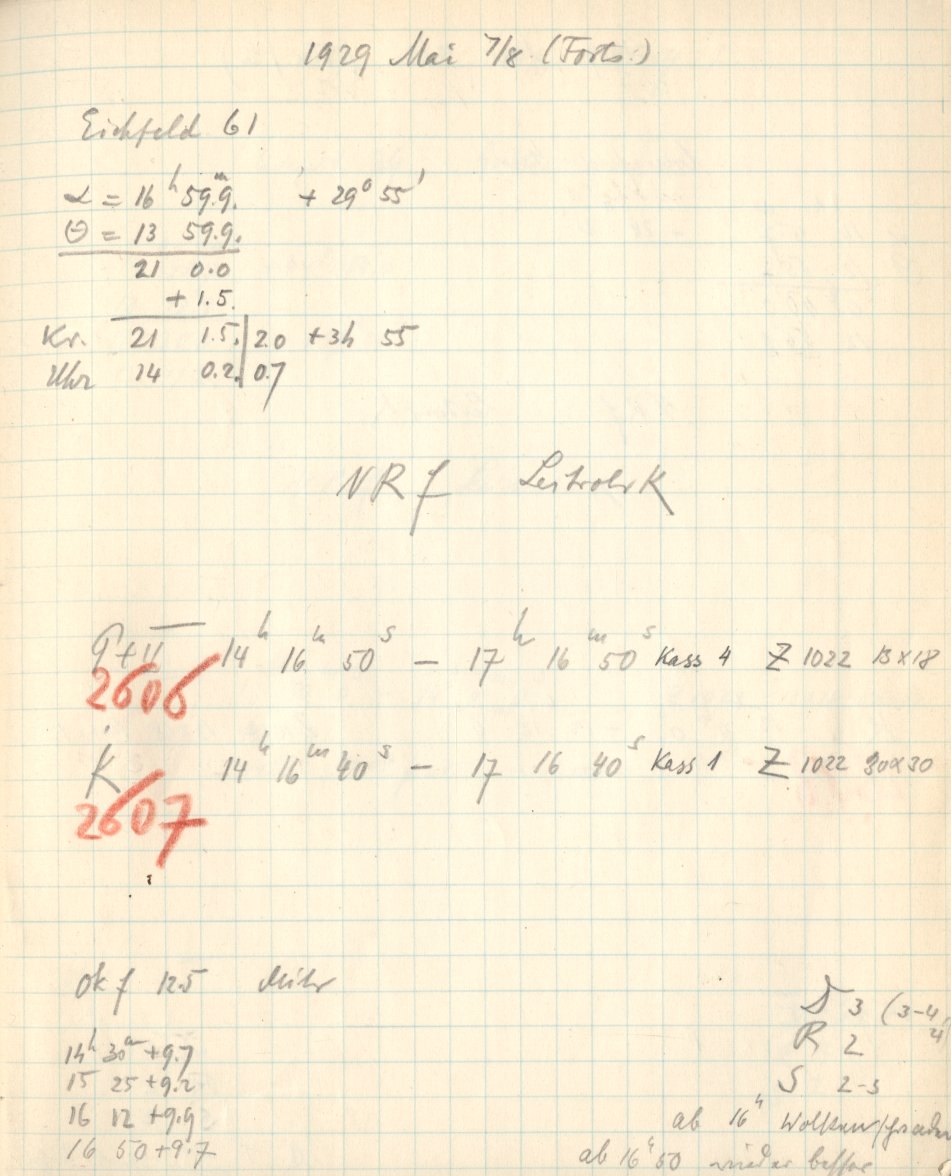 1929 Mai 7/8 (Forts.)
Eichfeld 61
α = 16 h 59.9 m + 29° 55'
Θ = 13 59.9.
21 0.0
+ 1.5.
Kr. 21 1.5. | 2.0 + 3h 55
Uhr 14 0.2. | 0.7
NR f Leitrohr K
14 h 16 m 50 s — 17 h 16 m 50 s Kass 4 Z 1022 13x18
2606
K 14 h 16 m 40 s — 17 16 40 s Kass 1 Z 1022 30x30
2607
Ok f 12.5
D 3 (3-4,
4
R 2
S 2-3
14h 30m +9.7
15 25 +9.2
16 12 +9.9
16 50 +9.7
ab 16h Wolken
ab 16h 50 wieder besser